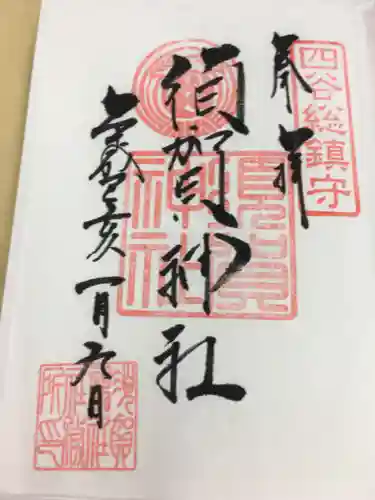 四谷総鎮守
奉拝
須賀神社
須賀神社
己亥一月六日
須賀神社社務所印